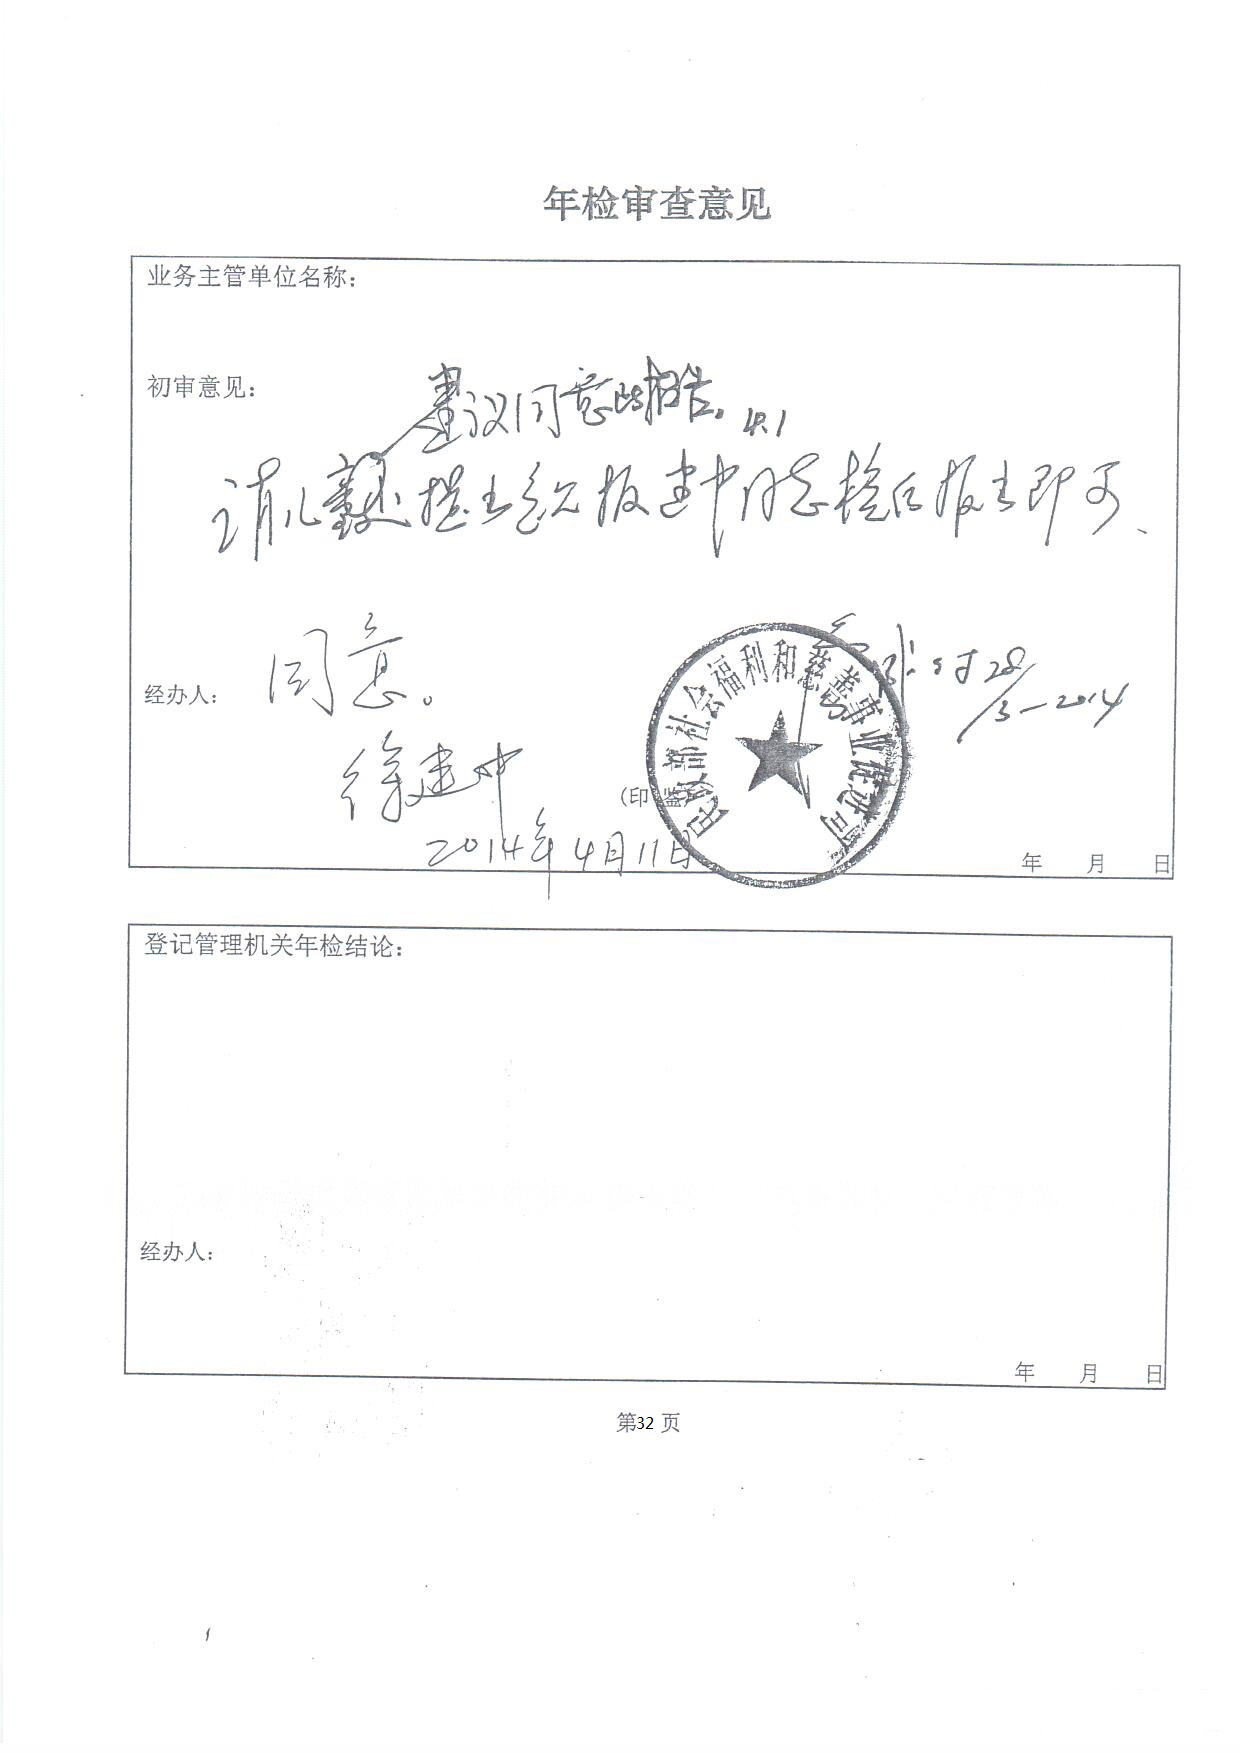 年检审查意见
业务主管单位名称：
初审意见：
建议同意此报告。4.1
请儿童处提出意见报建中同志检后报出即可、
同意。
28/3-2014
经办人：
徐建中
（印 鉴）
民政部社会福利和慈善事业促进司
2014年4月11日
年 月 日
登记管理机关年检结论：
经办人：
年 月 日
第32 页